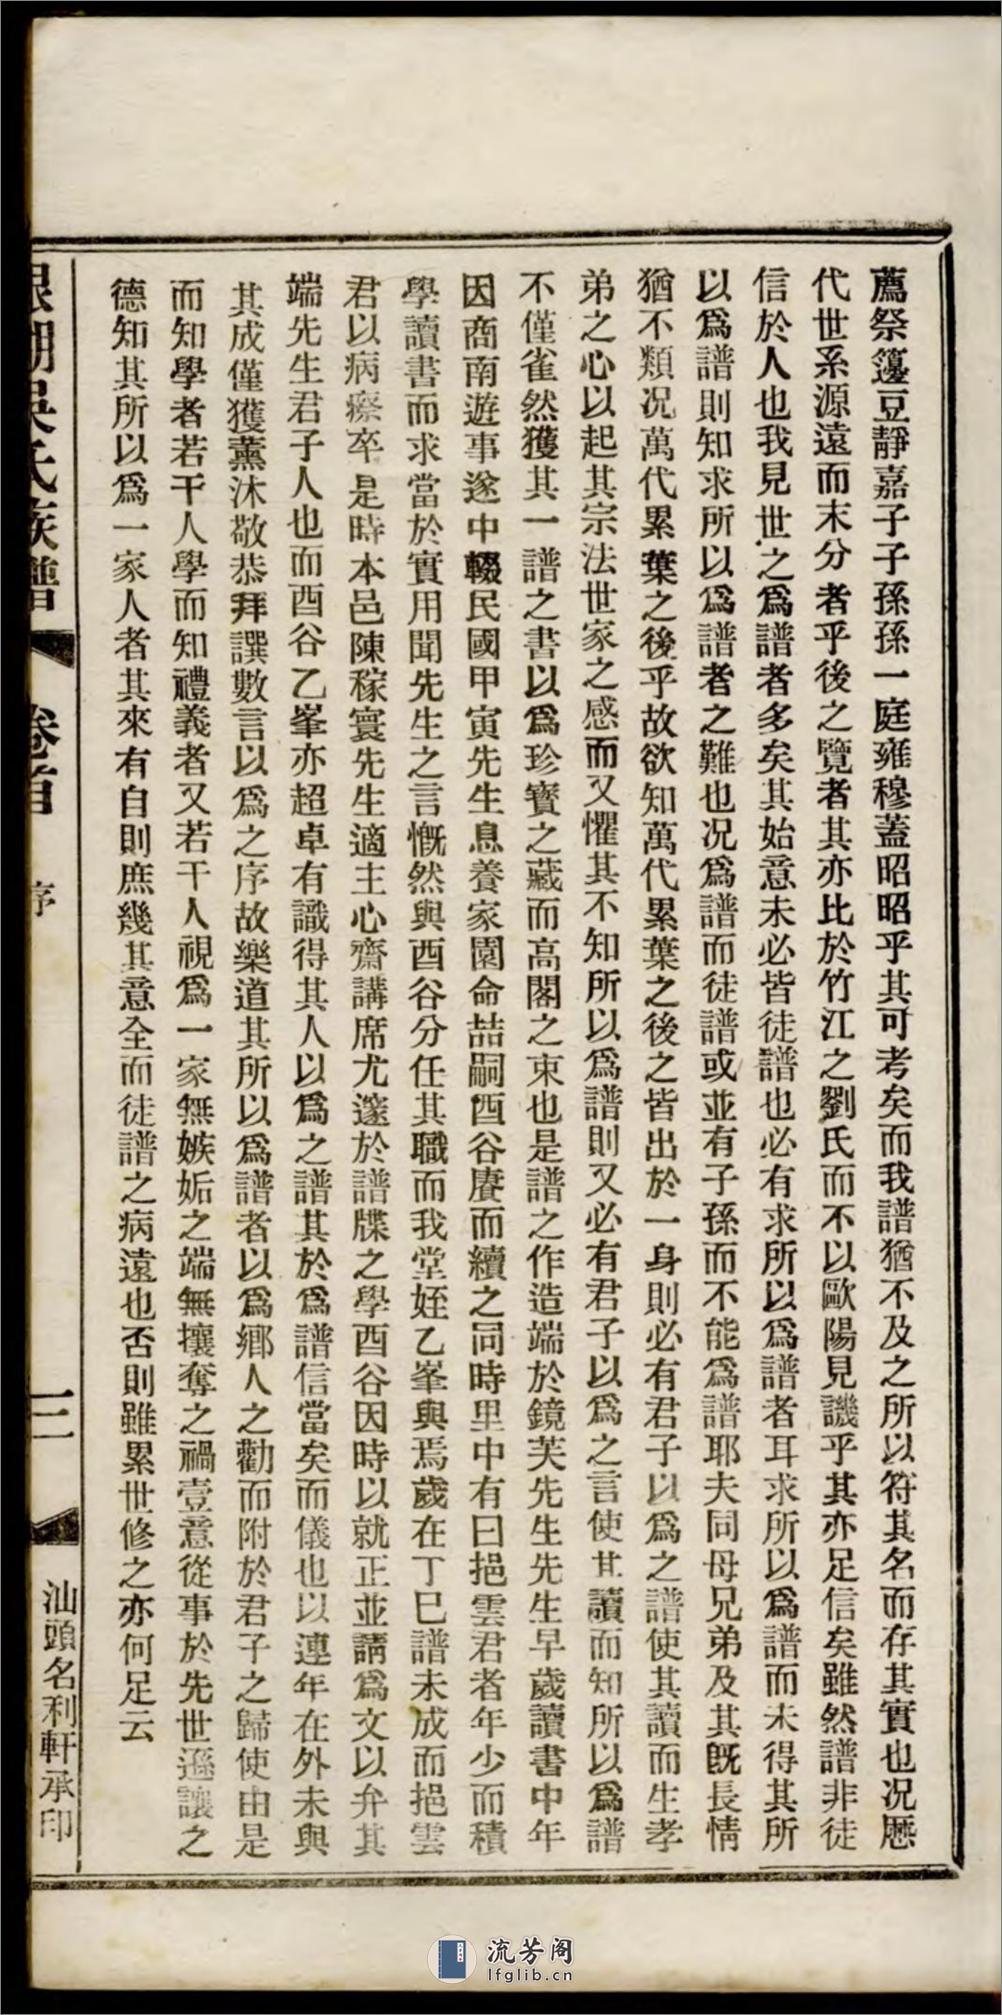 薦祭籩豆靜嘉子子孫孫一庭雍穆蓋昭昭乎其可考矣而我譜猶不及之所以符其名而存其實也况歷
代世系源遠而末分者乎後之覽者其亦比於竹江之劉氏而不以歐陽見譏乎其亦足信矣雖然譜非徒
信於人也我見世之爲譜者多矣其始意未必皆徒譜也必有求所以爲譜者耳求所以爲譜而未得其所
以爲譜則知求所以爲譜者之難也况爲譜而徒譜或並有子孫而不能爲譜耶夫同母兄弟及其旣長情
猶不類况萬代累葉之後乎故欲知萬代累葉之後之皆出於一身則必有君子以爲之譜使其讀而生孝
弟之心以起其宗法世家之感而又懼其不知所以爲譜則又必有君子以爲之言使其讀而知所以爲譜
不僅雀然獲其一譜之書以爲珍寶之藏而高閣之束也是譜之作造端於鏡芙先生先生早歲讀書中年
因商南遊事遂中輟民國甲寅先生息養家園命喆嗣酉谷賡而續之同時里中有曰挹雲君者年少而積
學讀書而求當於實用聞先生之言慨然與酉谷分任其職而我堂姪乙峯與焉歲在丁巳譜未成而挹雲
君以病瘵卒是時本邑陳稼寰先生適主心齋講席尤邃於譜牒之學酉谷因時以就正並請爲文以弁其
端先生君子人也而酉谷乙峯亦超卓有識得其人以爲之譜其於爲譜信當矣而儀也以連年在外未與
其成僅獲薰沐敬恭拜譔數言以爲之序故樂道其所以爲譜者以爲鄉人之勸而附於君子之歸使由是
而知學者若干人學而知禮義者又若干人視爲一家無嫉妬之端無攘奪之禍壹意從事於先世遜讓之
德知其所以爲一家人者其來有自則庶幾其意全而徒譜之病遠也否則雖累世修之亦何足云
湖吳氏族譜 卷首 序 三 汕頭名利軒承印
流芳阁
lfglib.cn